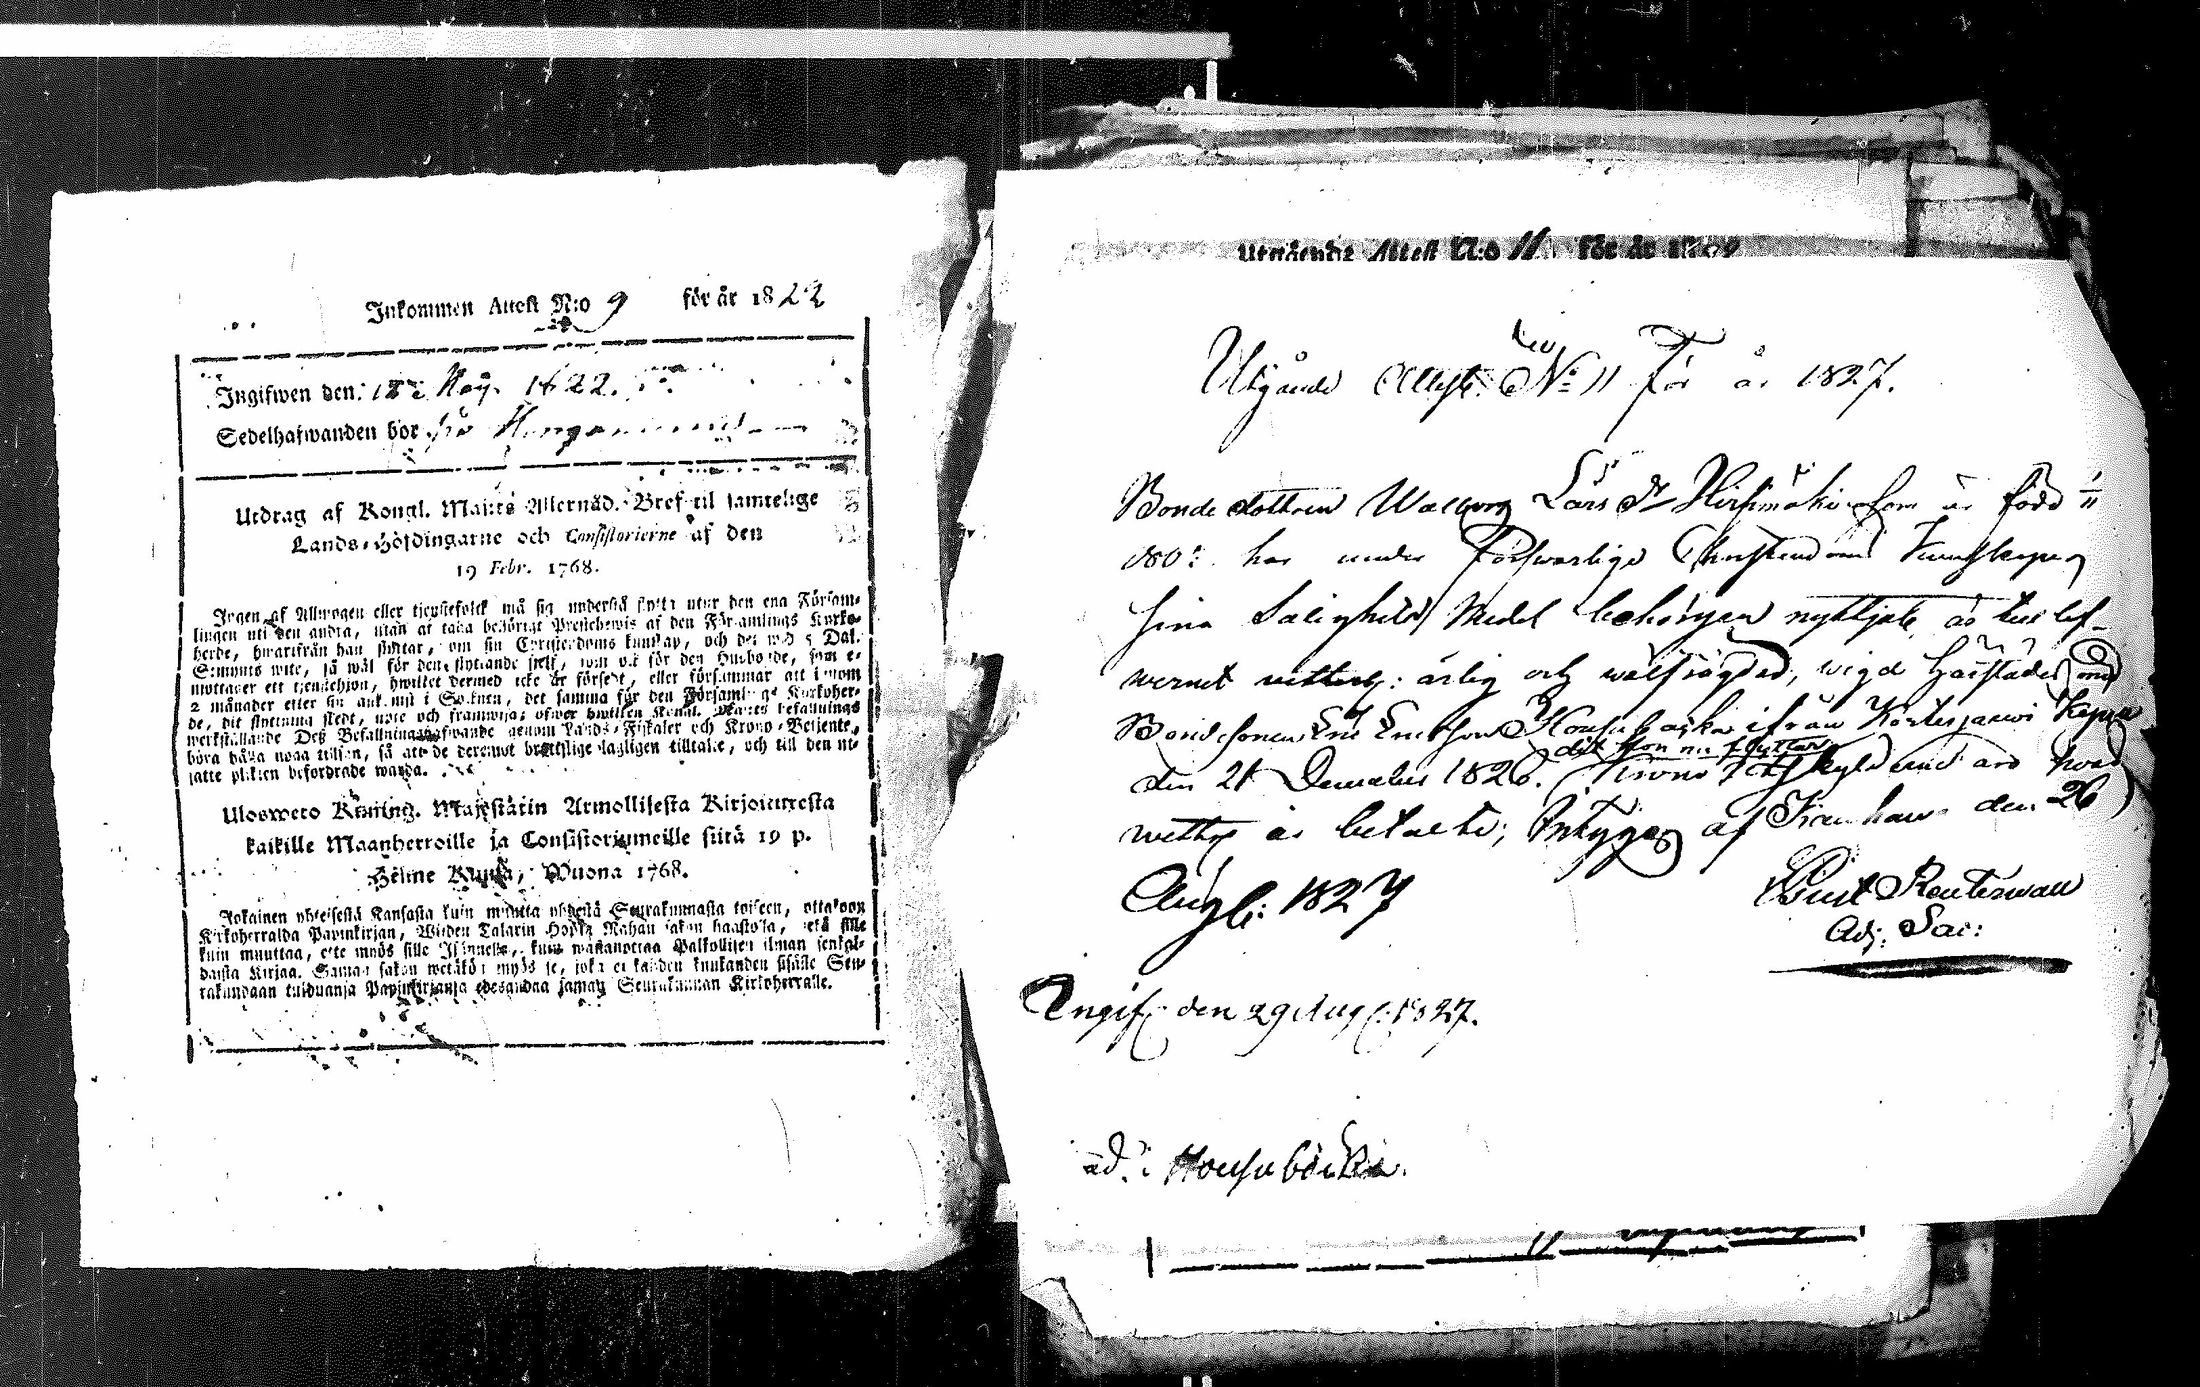 Inkommen Attest N:o 9 för år 1822
Ingifwen den: 12 May. 1822.
Sedelhafwanden bor
Utdrag af Kongl. Maj:ts Allernåd. Bref til samtelige
Lands-Höfdingarne och Consistorierne af den
19 Febr. 1768.
Ingen af Allmogen eller tjenstefolck må sig understå flytta utur den ena Försam-
lingen uti den andra, utan at taga behörigt Prestebewis af den Församlings Kyrko-
herde, hwarifrån han flyttar, om sin Christendoms kunskap, och det wid 5 Dal.
S:mynts wite, så wäl för den flyttande sjelf, som ock för den Husbonde, som e-
mottager ett tjenstehjon, hwilket dermed icke är försedt, eller försummar att inom
2 månader efter sin ankomst i Socknen, det samma för den Församlings Kyrkoher-
de, dit flyttning skedt, upte och framwisa; öfwer hwilken Kongl. Maj:ts befallnings
werkställande Deß Befallningshafwande genom Lands-Fiskaler och Krono-Betjente,
böra hålla noga tilsyn, så att de deremot brottslige lagligen tilltalte, och till den ut-
satte plikten befordrade warda.
Ulosweto Kuning. Majestätin Armollisesta Kirjoituxesta
kaikille Maanherroille ja Consistoriumeille siitä 19 p.
Helme Kuusa, Wuona 1768.
Jokainen yhteisestä Kansasta kuin muutta yhdestä Seurakunnasta toiseen, ottakoon
Kirkoherralda Papinkirjan, Wijden Talarin Hopia Rahan sakon haastolla, sekä sille
kuin muuttaa, ette myös sille Isännelle, kuin wastanottaa Palkollisen ilman senkal-
daista Kirjaa. Saman sakon wetäkön myös se, joka ei kahden kuukauden sisälle Seu-
rakundaan tulduansa Papinkirjansa edesandaa saman Seurakunnan Kirkoherralle.
Utgående Attest N:o 11 för år
Utgånde Attest No 11 För år 1827.
Bonde dottren Walborg Lars Dr Hirsimäki som är född
180 har under förswarlige Christendoms Kunskaper
sina Salighets Medel behörigen nyttjat, är till lef-
wernet wetterl: ärlig och wälfrägdad, wigd härstädes med
Bondesonen Eric Ericsson Housubacka ifrån Körtesjärwi Kapell
dit hon nu flyttar
den 26 December 1826. Krono
wetterl är betalte; Intygar af den 26
Aug:li 1827
Reuterwall
Adj. Sac:
Ingif: den 29 Aug: 1827.
ad. i Housubacka.